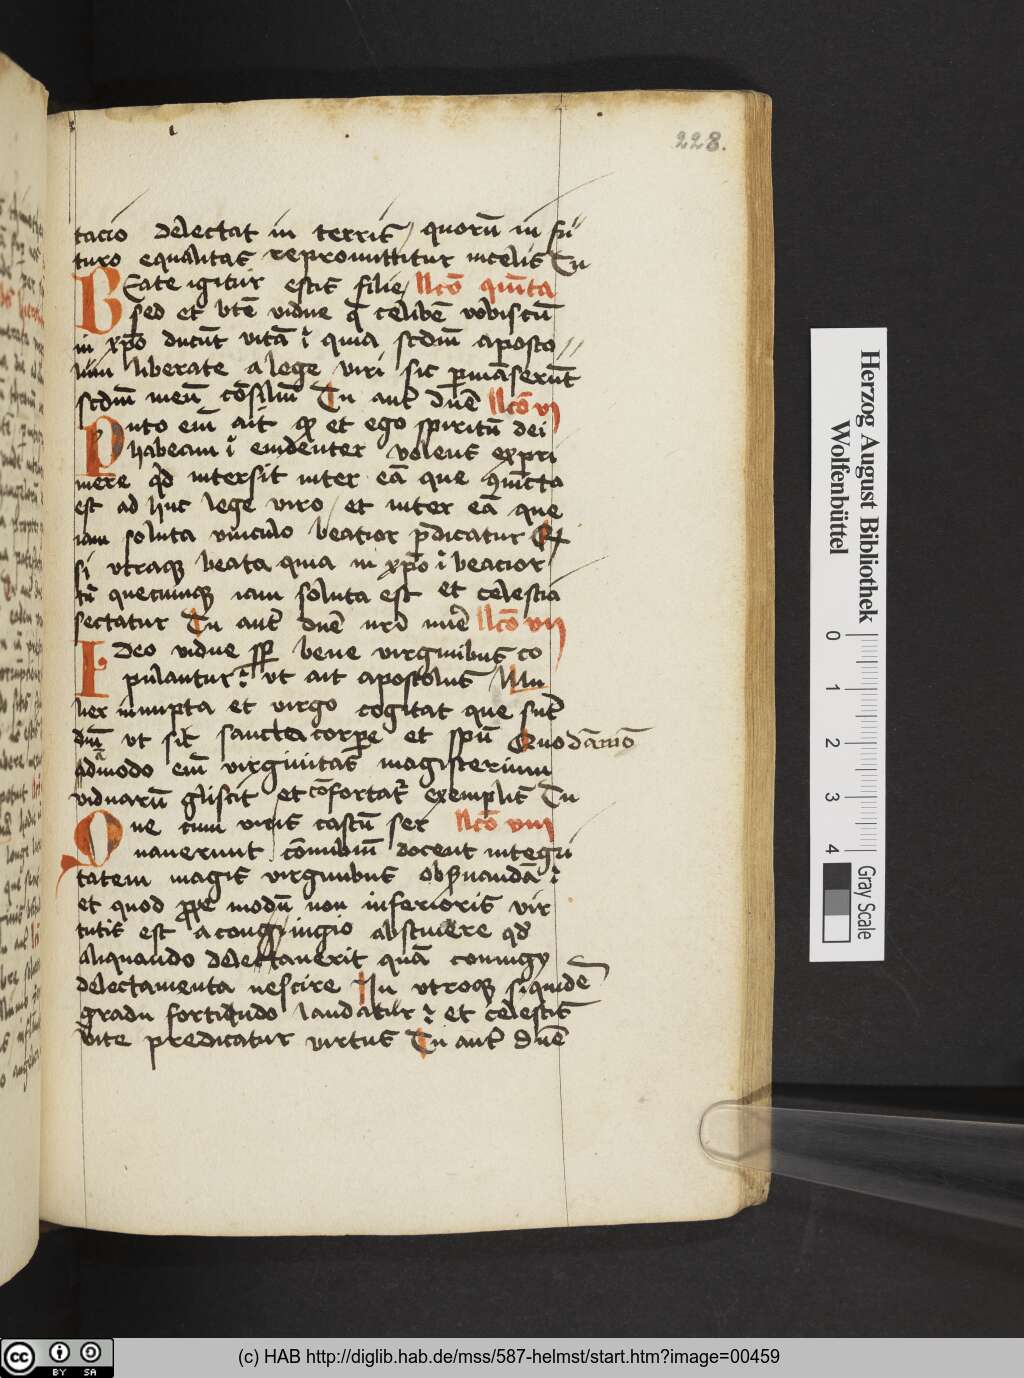 228.
tacio delectat in terris / quorū in fu
turo equalitas repromittitur in celis Tu
Beate igitur estis filie / llco᷒ qui᷑ta
sed et btē vidue q̄ celibē vobiscū
in xp̄o ducūt vitā ⁊ quia scdm̄ aposto //
lum liberate a lege viri sic p̄māserūt
scdm̄ meū cōsiliū Tu aut᷑ dn̄e llcō vi
Puto em̄ ait qꝫ et ego spiritū dei
habeam ⁊ euidenter volens expri
mere qd̄ intersit inter eā que ꝯiūcta
est ad huc lege viro / et inter eā que
iam soluta vinculo beatior p̄dicatur Et
si vtraqꝫ beata quia in xp̄o ⁊ beacior
tn̄ quecumqꝫ iam soluta est et celestia
sectatur Tu aut᷑ dn̄e nr̄i mīe llcō vii
Ideo vidue sꝑ bene virginibus co
pulantur ⁊ vt ait apostolus Mu
lier innupta et virgo cogitat que sunt
dn̄i vt sit sancta corpe et spū Quodāmō
admodo em̄ virginitas magisterium
viduarū gliscit et cōfortat᷑ exemplis Tu
Que cum viris castū ser llcō viii
uauerunt cōnubiū docent integri
tatem magis virginibus obs̄uandā ⁊
et quod ꝓpe modū non inferioris vir
tutis est a coniugio abstinere qd̄
aliquando delectauerit quā coniugii
delectamenta nescire In vtroqꝫ siquidē
gradu fortitudo laudatur ⁊ et celestis
vite predicatur virtus Tu aut᷑ dn̄e
Herzog August Bibliothek
Wolfenbüttel
0 1 2 3 4
Gray Scale
cc BY SA
(c) HAB http://diglib.hab.de/mss/587-helmst/start.htm?image=00459